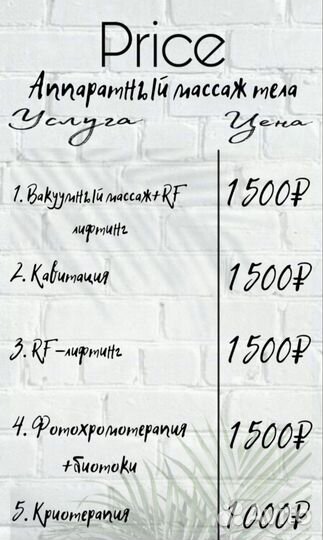 Price
Аппаратный массаж тела
Услуга Цена
1. Вакуумный массаж+RF 1500₽
лифтинг
2. Кавитация 1500₽
3. RF-лифтинг 1500₽
4. Фотохромотерапия 1500₽
+биотоки
5. Криотерапия 1000₽